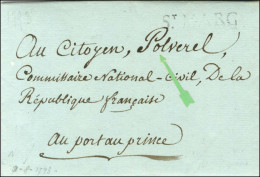 St MARC
Au Citoyen, Polverel,
Commissaire National-Civil, De la
République française
au port au prince